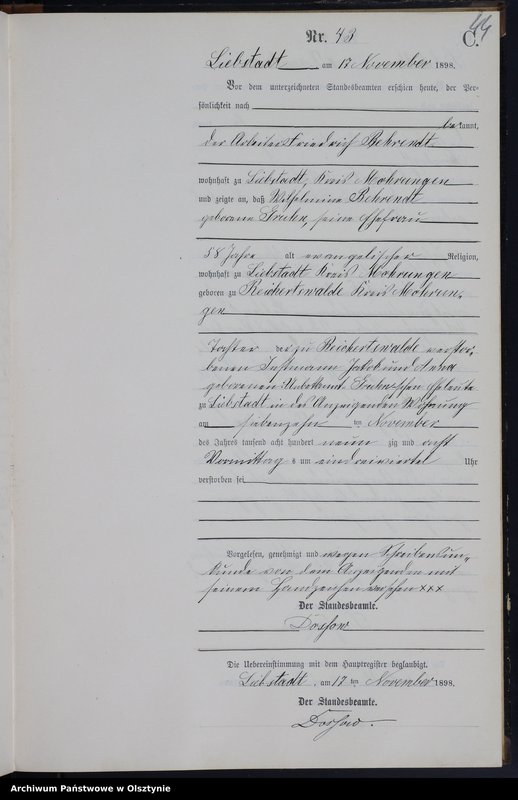 44
C.
Nr. 43
Liebstadt am 17 November 1898.
Vor dem unterzeichneten Standesbeamten erschien heute, der Per-
sönlichkeit nach
bekannt,
der Arbeiter Friedrich Behrendt
wohnhaft zu Liebstadt, Kreis Mohrungen
und zeigte an, daß Wilhelmine Behrendt
geborene Gruhn, seine Ehefrau
58 Jahre alt evangelischer Religion,
wohnhaft zu Liebstadt Kreis Mohrungen
geboren zu Reichertswalde Kreis Mohrun-
gen
Tochter der zu Reichertswalde verstor-
benen Instmann Jakob und Anna
geborenen Gruhn'schen Eheleute
zu Liebstadt in des Anzeigenden Wohnung
am siebenzehn ten November
des Jahres tausend acht hundert neun zig und acht
Vormittag s um eindreiviertel Uhr
verstorben sei
Vorgelesen, genehmigt und wegen Schreibensun-
kunde von dem Anzeigenden mit
seinem Handzeichen versehen xxx
Der Standesbeamte.
Die Uebereinstimmung mit dem Hauptregister beglaubigt.
Liebstadt, am 17 ten November 1898.
Der Standesbeamte.
Archiwum Państwowe w Olsztynie